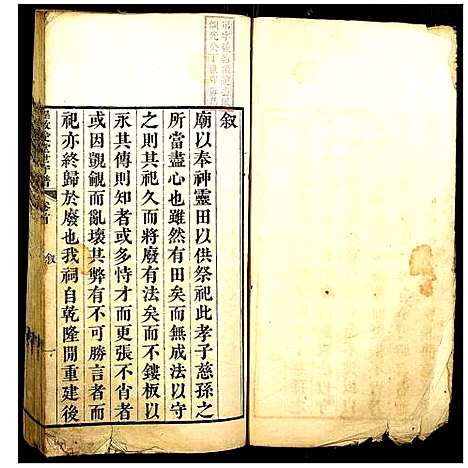 叙
廟以奉神靈田以供祭祀此孝子慈孫之
所當盡心也雖然有田矣而無成法以守
之則其祀久而將廢有法矣而不鏤板以
永其傳則知者或多恃才而更張不肖者
或因覬覦而亂壞其弊有不可勝言者而
祀亦終歸於廢也我祠自乾隆間重建後
世守譜
卷首
叙